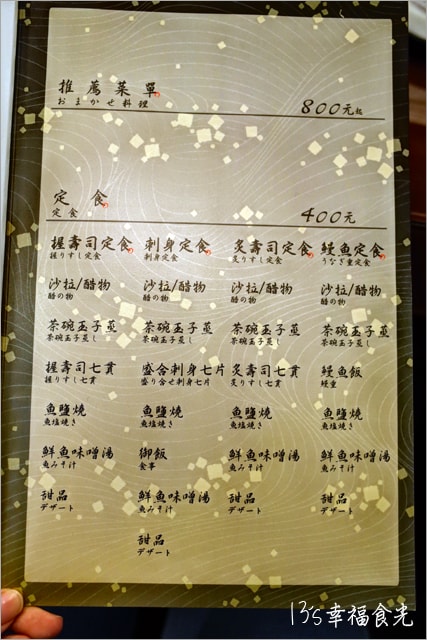 推薦菜單
おまかせ料理
800元起
定食
定食
400元
握壽司定食 刺身定食 炙壽司定食 鰻魚定食
握りすし定食 刺身定食 炙りすし定食 うなぎ重定食
沙拉/醋物 沙拉/醋物 沙拉/醋物 沙拉/醋物
醋の物 醋の物 醋の物 醋の物
茶碗玉子蒸 茶碗玉子蒸 茶碗玉子蒸 茶碗玉子蒸
茶碗玉子蒸し 茶碗玉子蒸し 茶碗玉子蒸し 茶碗玉子蒸し
握壽司七貫 盛合刺身七片 炙壽司七貫 鰻魚飯
握りすし七貫 盛り合せ刺身七片 炙りすし七貫 鰻重
魚鹽燒 魚鹽燒 魚鹽燒 魚鹽燒
魚塩焼き 魚塩焼き 魚塩焼き 魚塩焼き
鮮魚味噌湯 御飯 鮮魚味噌湯 鮮魚味噌湯
魚みそ汁 食事 魚みそ汁 魚みそ汁
甜品 鮮魚味噌湯 甜品 甜品
デザート 魚みそ汁 デザート デザート
甜品
デザート
13's幸福食光